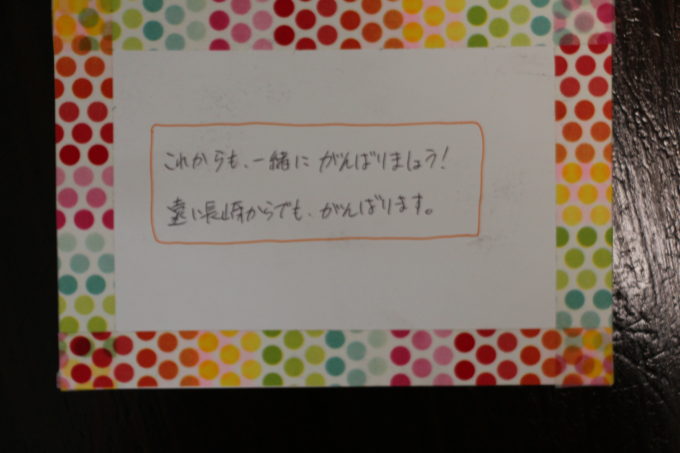 これからも、一緒に がんばりましょう!
遠い長崎からでも、がんばります。